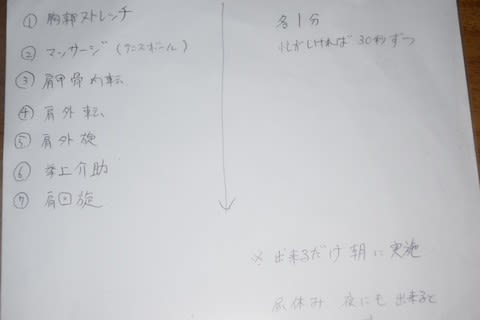 ① 胸部ストレッチ
② マッサージ (テニスボール)
③ 肩甲骨内転
④ 肩外転
⑤ 肩外旋
⑥ 挙上介助
⑦ 肩回旋
各1分
忙しければ 30秒ずつ
※ 出来るだけ朝に実施
昼休み 夜にも 出来ると